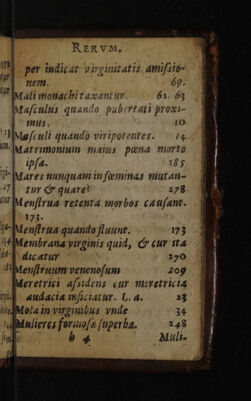 RERVM.
per indicat virginitatis amissio-
nem. 69.
Mali monachi taxantur 62. 63
Masculus quando pubertati proxi-
mus. 10
Masculi quando viripotentes. 14
Matrimonium maius pœna morte
ipsa. 185
Mares nunquam in fœminas mutan-
tur & quare? 278
Menstrua retenta morbos causant.
173.
Menstrua quando fluunt. 173
Membrana virginis quid, & cur ita
dicatur 270
Menstruum venenosum 209
Meretrici assidens cur meretricia
audacia inficiatur. L. a. 23
Mola in virginibus vnde 34
Mulieres formosæ superbæ. 248
h 4 Muli-